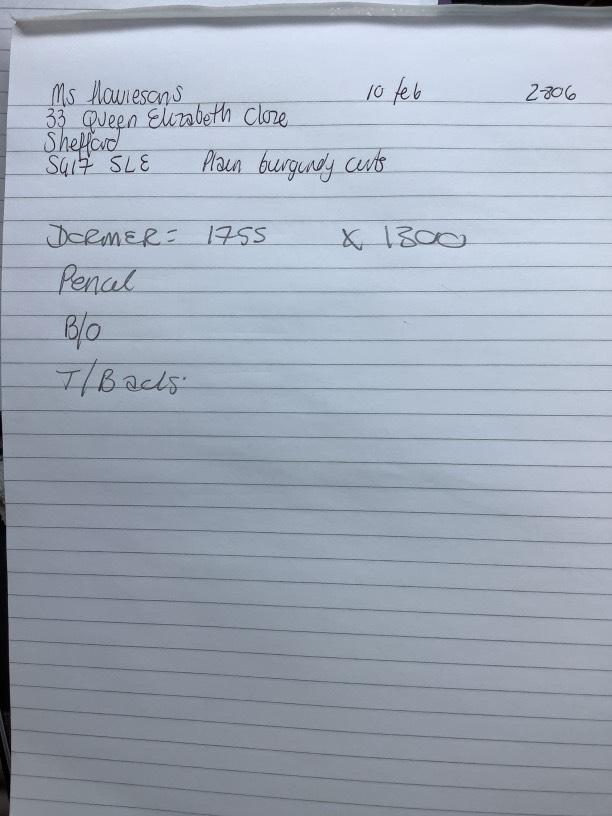 Ms Hawiesons 10 feb 2806
33 Queen Elizabeth Close
Shefford
SG17 5LE Plain burgundy certs
DORMER = 1755 X 1300
Pencil
B/O
T/Backs.